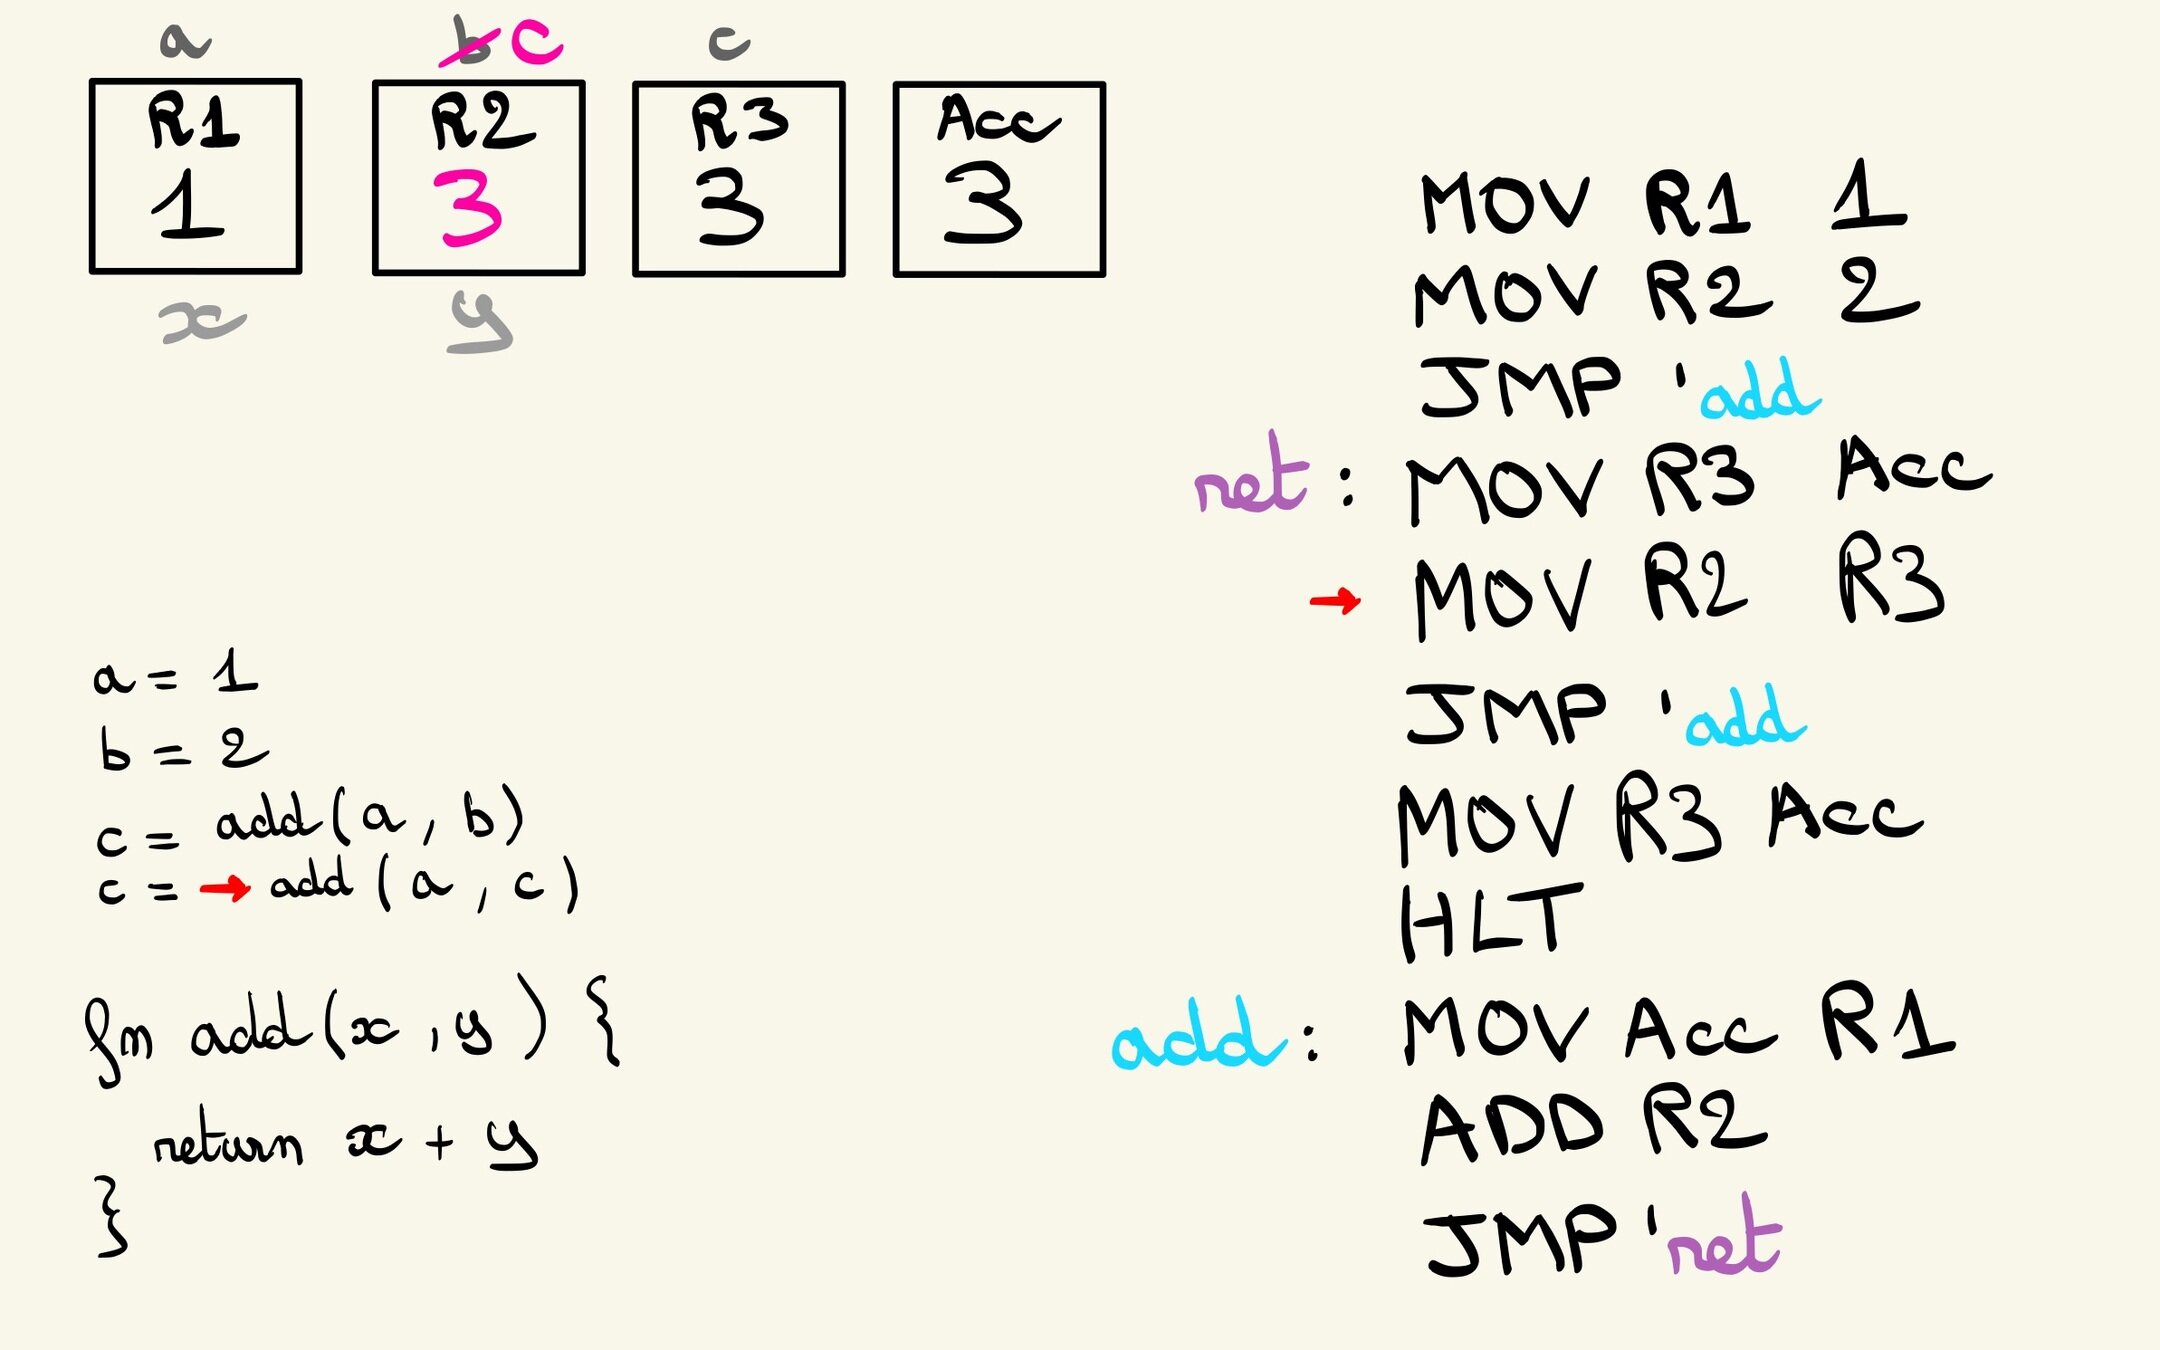 a b c c
R1 R2 R3 Acc
1 3 3 3
x y
a = 1
b = 2
c = add(a, b)
c = → add(a, c)
fn add(x, y) {
return x + y
}
MOV R1 1
MOV R2 2
JMP 'add
ret: MOV R3 Acc
→ MOV R2 R3
JMP 'add
MOV R3 Acc
HLT
add: MOV Acc R1
ADD R2
JMP 'ret